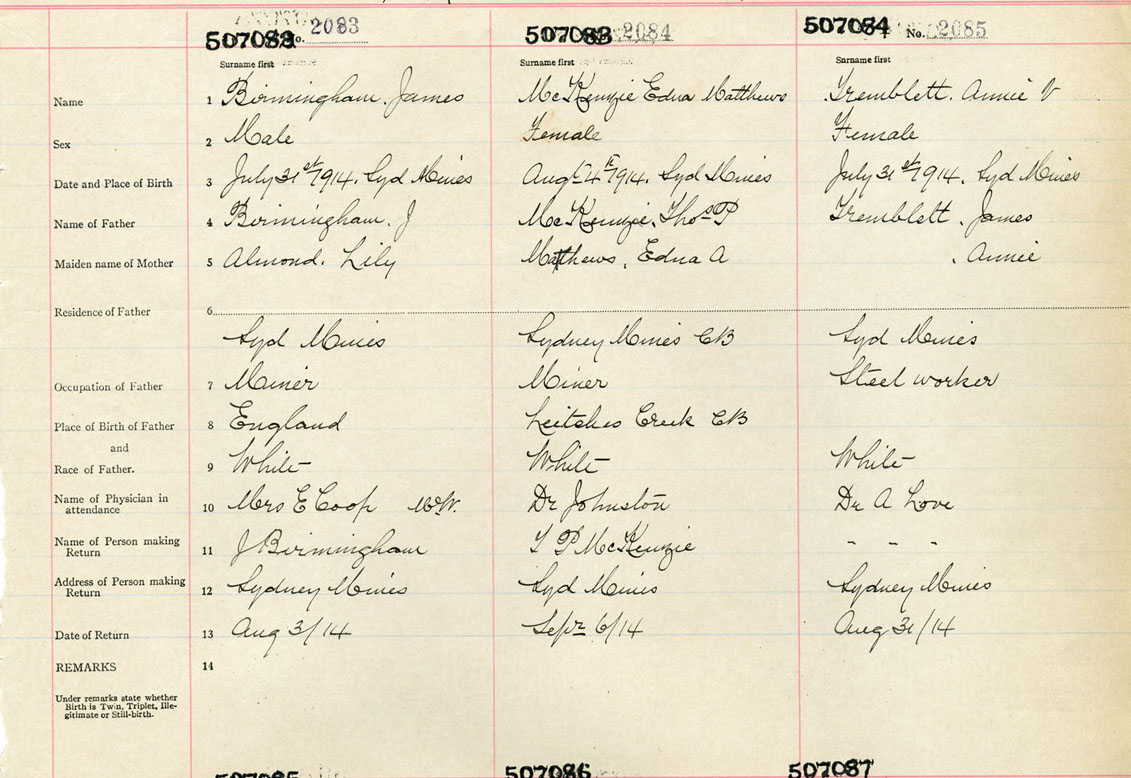 507082 No. 2083 507083 2084 507084 No. 2085
Surname first Surname first Surname first
Name 1 Birmingham. James McKenzie Edna Matthews Tremblett. Annie V
Sex 2 Male Female Female
Date and Place of Birth 3 July 31st 1914. Syd Mines Augt 4th 1914. Syd Mines July 31st 1914. Syd Mines
Name of Father 4 Birmingham. J McKenzie. Thos P Tremblett. James
Maiden name of Mother 5 Almond. Lily Matthews, Edna A . Annie
Residence of Father 6
Syd Mines Sydney Mines CB Syd Mines
Occupation of Father 7 Miner Miner Steel worker
Place of Birth of Father 8 England Leitches Creek CB
and
Race of Father. 9 White White White
Name of Physician in
attendance 10 Mrs E Coop MW. Dr Johnston Dr A Love
Name of Person making
Return 11 J Birmingham T P McKenzie - - -
Address of Person making
Return 12 Sydney Mines Syd Mines Sydney Mines
Date of Return 13 Aug 3/14 Sepr 6/14 Aug 31/14
REMARKS 14
Under remarks state whether
Birth is Twin, Triplet, Ille-
gitimate or Still-birth.
507085 507086 507087